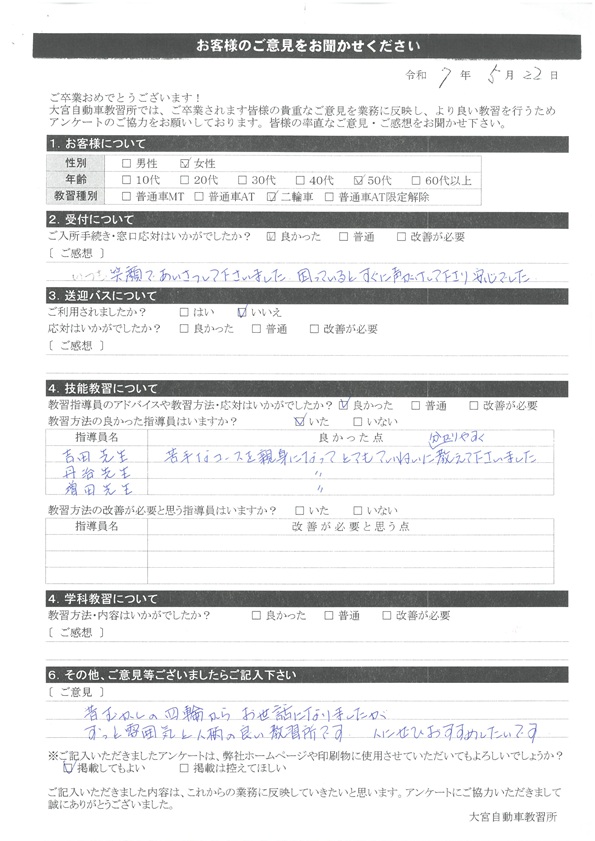 お客様のご意見をお聞かせください
令和 7 年 5 月 22 日
ご卒業おめでとうございます！
大宮自動車教習所では、ご卒業されます皆様の貴重なご意見を業務に反映し、より良い教習を行うため
アンケートのご協力をお願いしております。皆様の率直なご意見・ご感想をお聞かせ下さい。
1. お客様について
性別 □ 男性 ☑ 女性
年齢 □ 10代 □ 20代 □ 30代 □ 40代 ☑ 50代 □ 60代以上
教習種別 □ 普通車MT □ 普通車AT ☑ 二輪車 □ 普通車AT限定解除
2. 受付について
ご入所手続き・窓口応対はいかがでしたか？ ☑ 良かった □ 普通 □ 改善が必要
〔 ご感想 〕
いつも 笑顔であいさつして下さいました 困っているとすぐに声かけして下さり 安心でした
3. 送迎バスについて
ご利用されましたか？ □ はい ☑ いいえ
応対はいかがでしたか？ □ 良かった □ 普通 □ 改善が必要
〔 ご感想 〕
4. 技能教習について
教習指導員のアドバイスや教習方法・応対はいかがでしたか？ ☑ 良かった □ 普通 □ 改善が必要
教習方法の良かった指導員はいますか？ ☑ いた □ いない
指導員名 良かった点 分かりやすく
吉田先生 苦手なコースを親身になってとてもていねいに教えて下さいました
丹治先生 〃
増田先生 〃
教習方法の改善が必要と思う指導員はいますか？ □ いた □ いない
指導員名 改善が必要と思う点
4. 学科教習について
教習方法・内容はいかがでしたか？ □ 良かった □ 普通 □ 改善が必要
〔 ご感想 〕
6. その他、ご意見等ございましたらご記入下さい
〔 ご意見 〕
昔むかしの四輪から お世話になりましたが、
ずっと雰囲気と人柄の良い教習所です 人にぜひおすすめしたいです
※ご記入いただきましたアンケートは、弊社ホームページや印刷物に使用させていただいてもよろしいでしょうか？
☑ 掲載してもよい □ 掲載は控えてほしい
ご記入いただきました内容は、これからの業務に反映していきたいと思います。アンケートにご協力いただきまして
誠にありがとうございました。
大宮自動車教習所